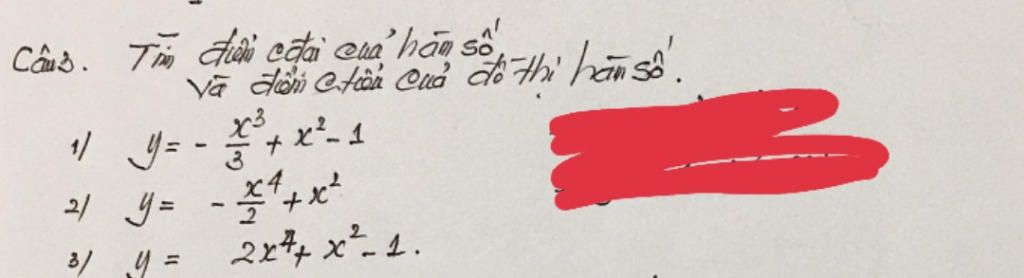 Câu3. Tìm điểm cđại của hàm số
và điểm c.tiểu của đồ thị hàm số.
1/ y = - x³/3 + x² - 1
2/ y = - x⁴/2 + x²
3/ y = 2x⁴ + x² - 1.